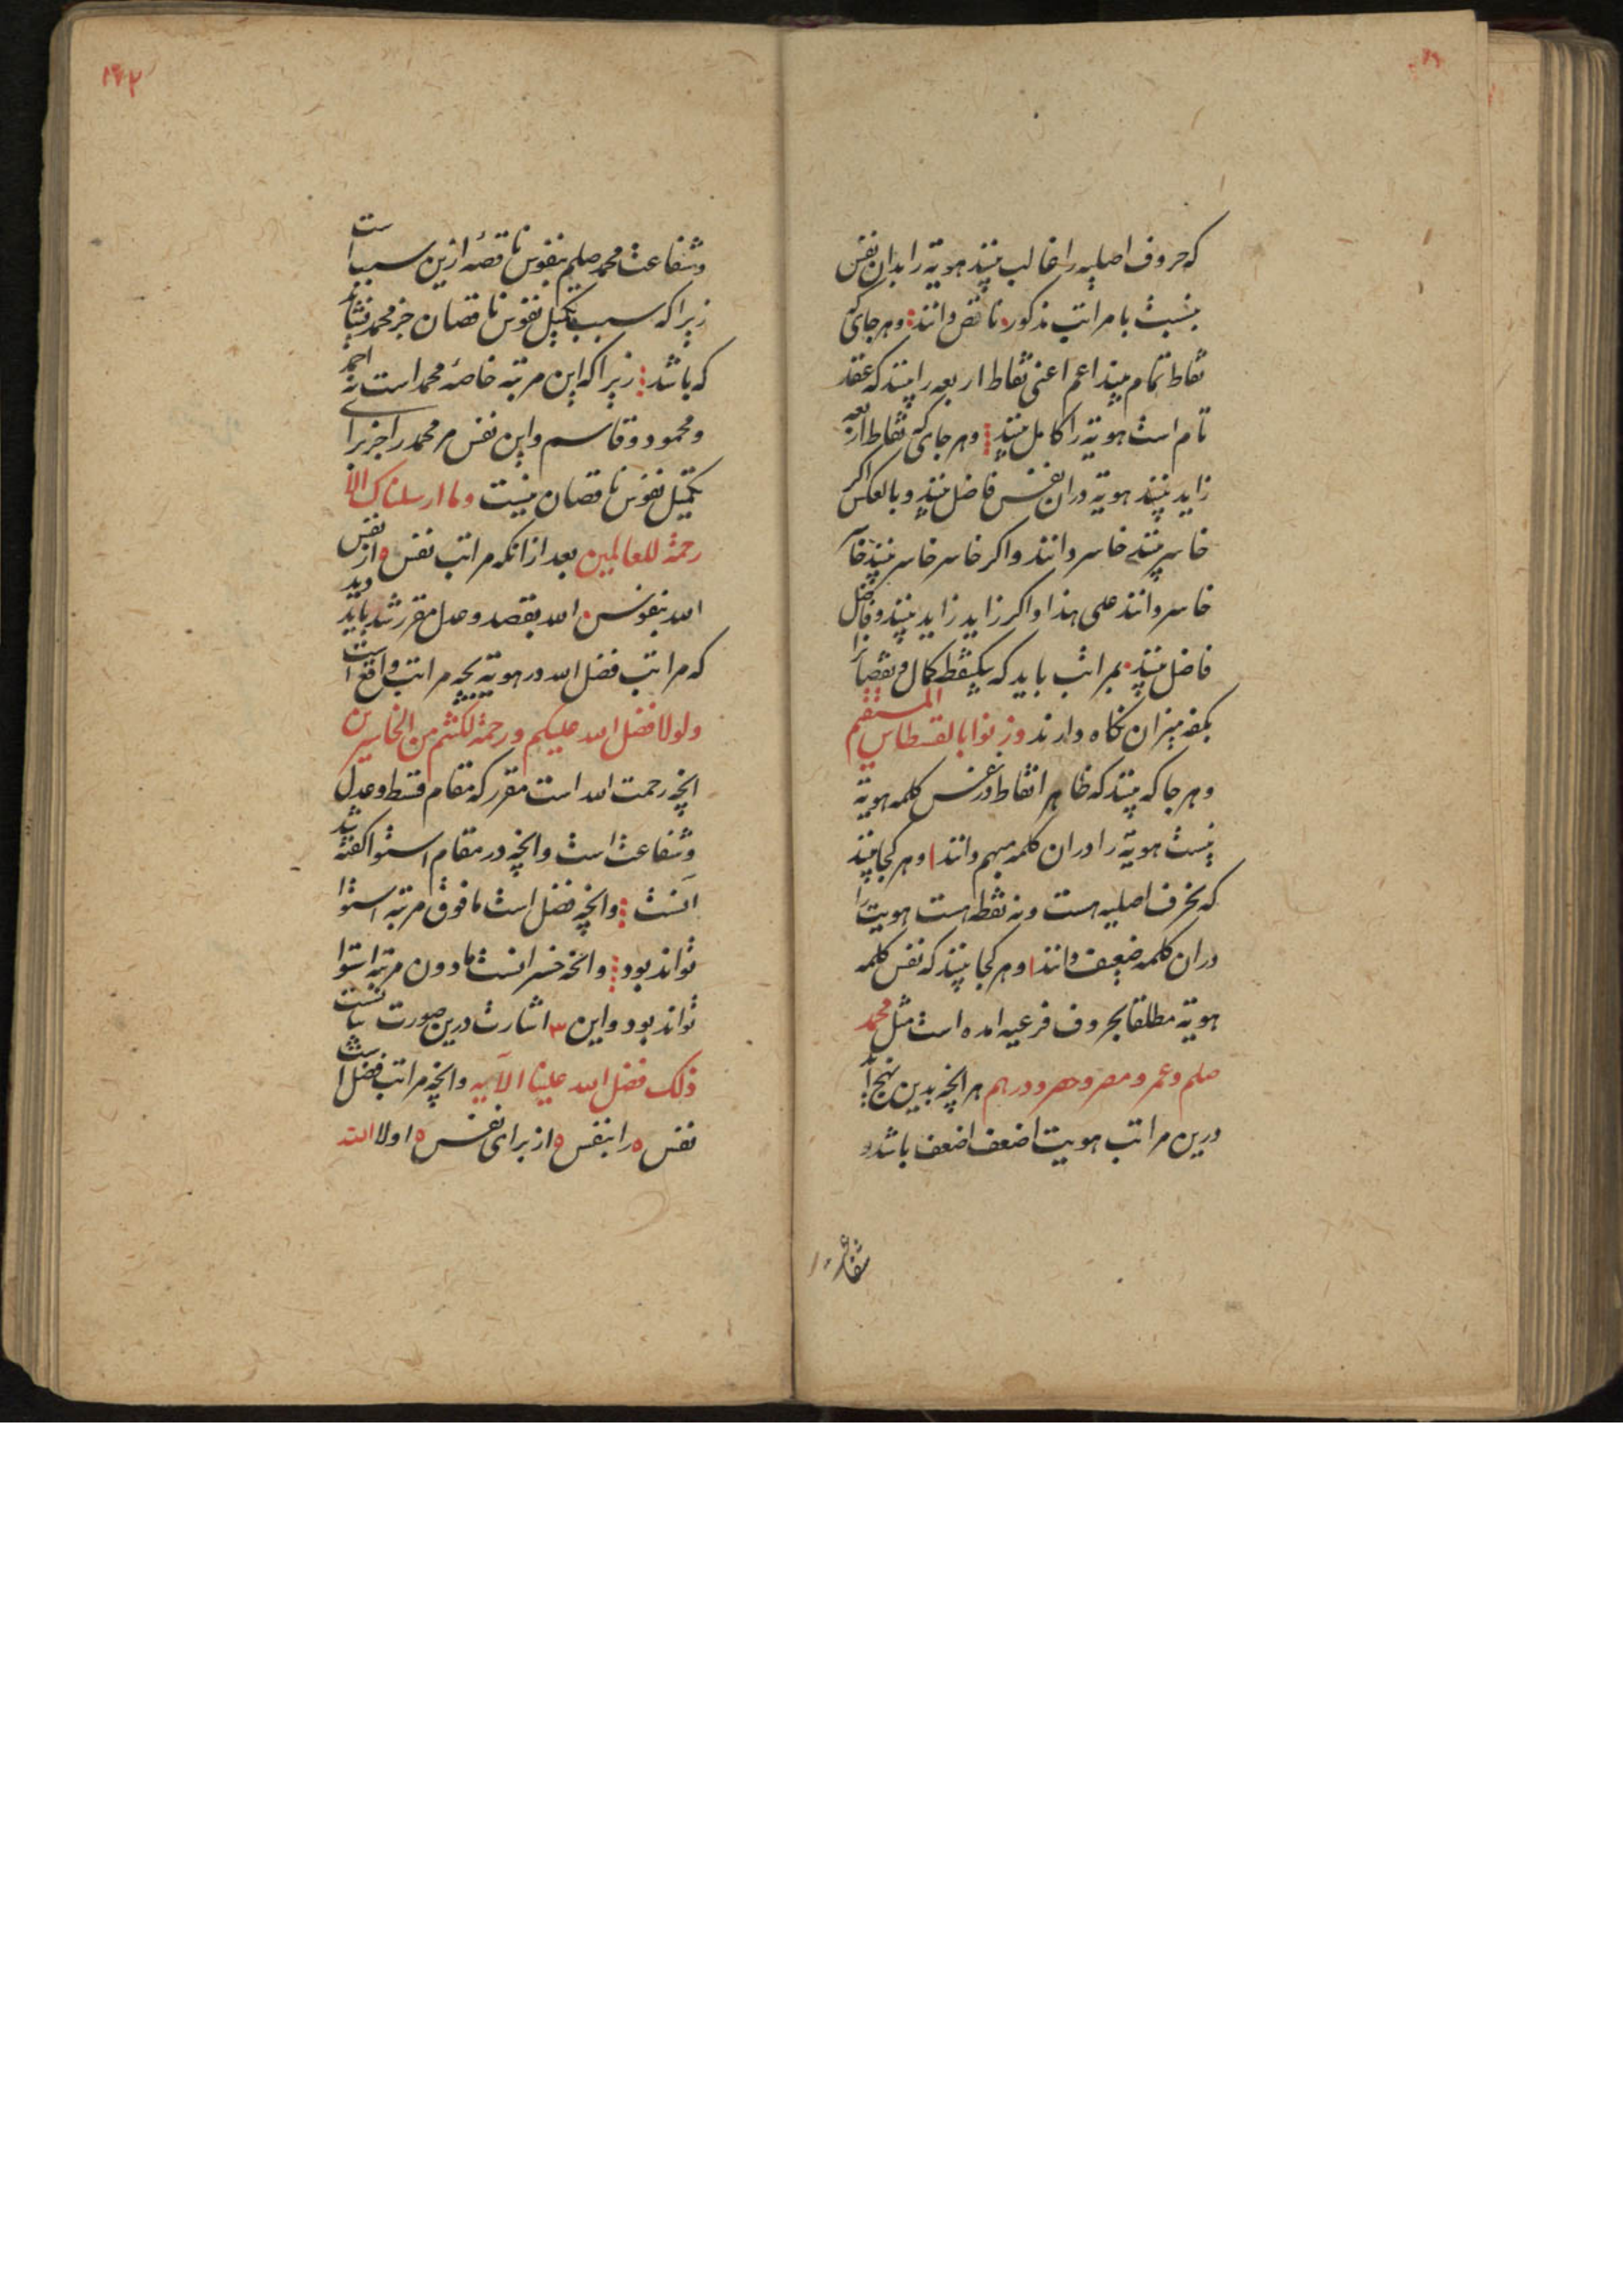 که حروف اصلیه را غالب بینند هویة را بدان نفس
بنسبت با مراتب مذکور۰ ناقص دانند؛ وهر جای که
نقاط تمام بیند اعم اعنی نقاط اربعه را بینند که عقد
تام است هویة را کامل بینند؛ وهر جای که نقاط اربعه
زاید بینند هویة دران نفس فاضل بینند وبالعکس اکر
خاسر بینند خاسر دانند واکر خاسر خاسر بینند
خاسر دانند علی هذا واکر زاید زاید بینند وفاضل
فاضل بینند۰ بمراتب باید که یکنقطه کمال ونقصانرا
بکفه میزان نکاه دارند وزنوا بالقسطاس المستقیم
وهر جا که بینند که ظاهر انقاط در نفس کلمه هویة
نیست هویة را دران کلمه مبهم دانند ا وهر کجا بینند
که نحرف اصلیه هست ونه نقطه هست هویت را
دران کلمه ضعیف دانند ا وهر کجا بینند که نفس کلمه
هویة مطلقا بحروف فرعیه امده است مثل محمد
صلم وعمر ومصر وحصر ودرهم هر انچه بدین نهج
درین مراتب هویت اضعف اضعف باشد و
۱۶۲
وشفاعت محمد صلم بنفوس ناقصه ازین سبب است
زیرا که سبب تکمیل نفوس ناقصان جز محمد نشاید
که باشد؛ زیرا که این مرتبه خاصه محمد است نه احمد
ومحمود وقاسم واین نفس مر محمد را جز برای
تکمیل نفوس ناقصان نیست وما ارسلناک الا
رحمة للعالمین بعد ازانکه مراتب نفس ه از نفس
الله بنفوس۰ الله بقصد وعدل مقرر شد باید دید
که مراتب فضل الله در هویة بچه مراتب واقع است
ولولا فضل الله علیکم ورحمة لکنتم من الخاسرین
انچه رحمت الله است مقرر که مقام قسط وعدل
وشفاعت است وانچه در مقام استوا کفته شد
آنست؛ وانچه فضل است مافوق مرتبه استوا
تواند بود؛ وانچه خسرانست مادون مرتبه استوا
تواند بود واین ۳ اشارت درین صورت
ذلک فضل الله علینا الآیه وانچه مراتب فضل است
نفس ه را بنفس ه از برای نفس ه اولا الله